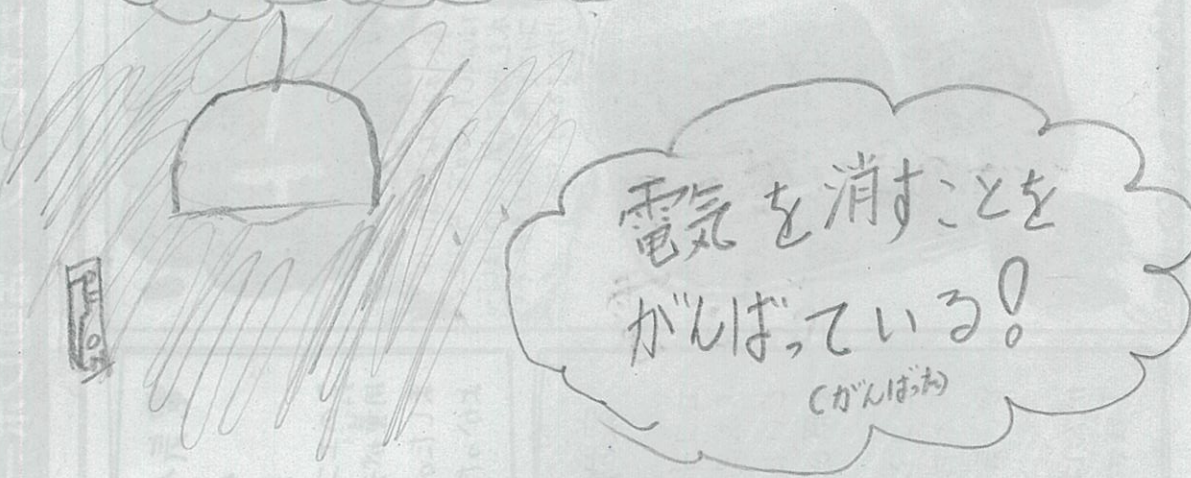 電気を消すことを
がんばっている!
(がんばった)